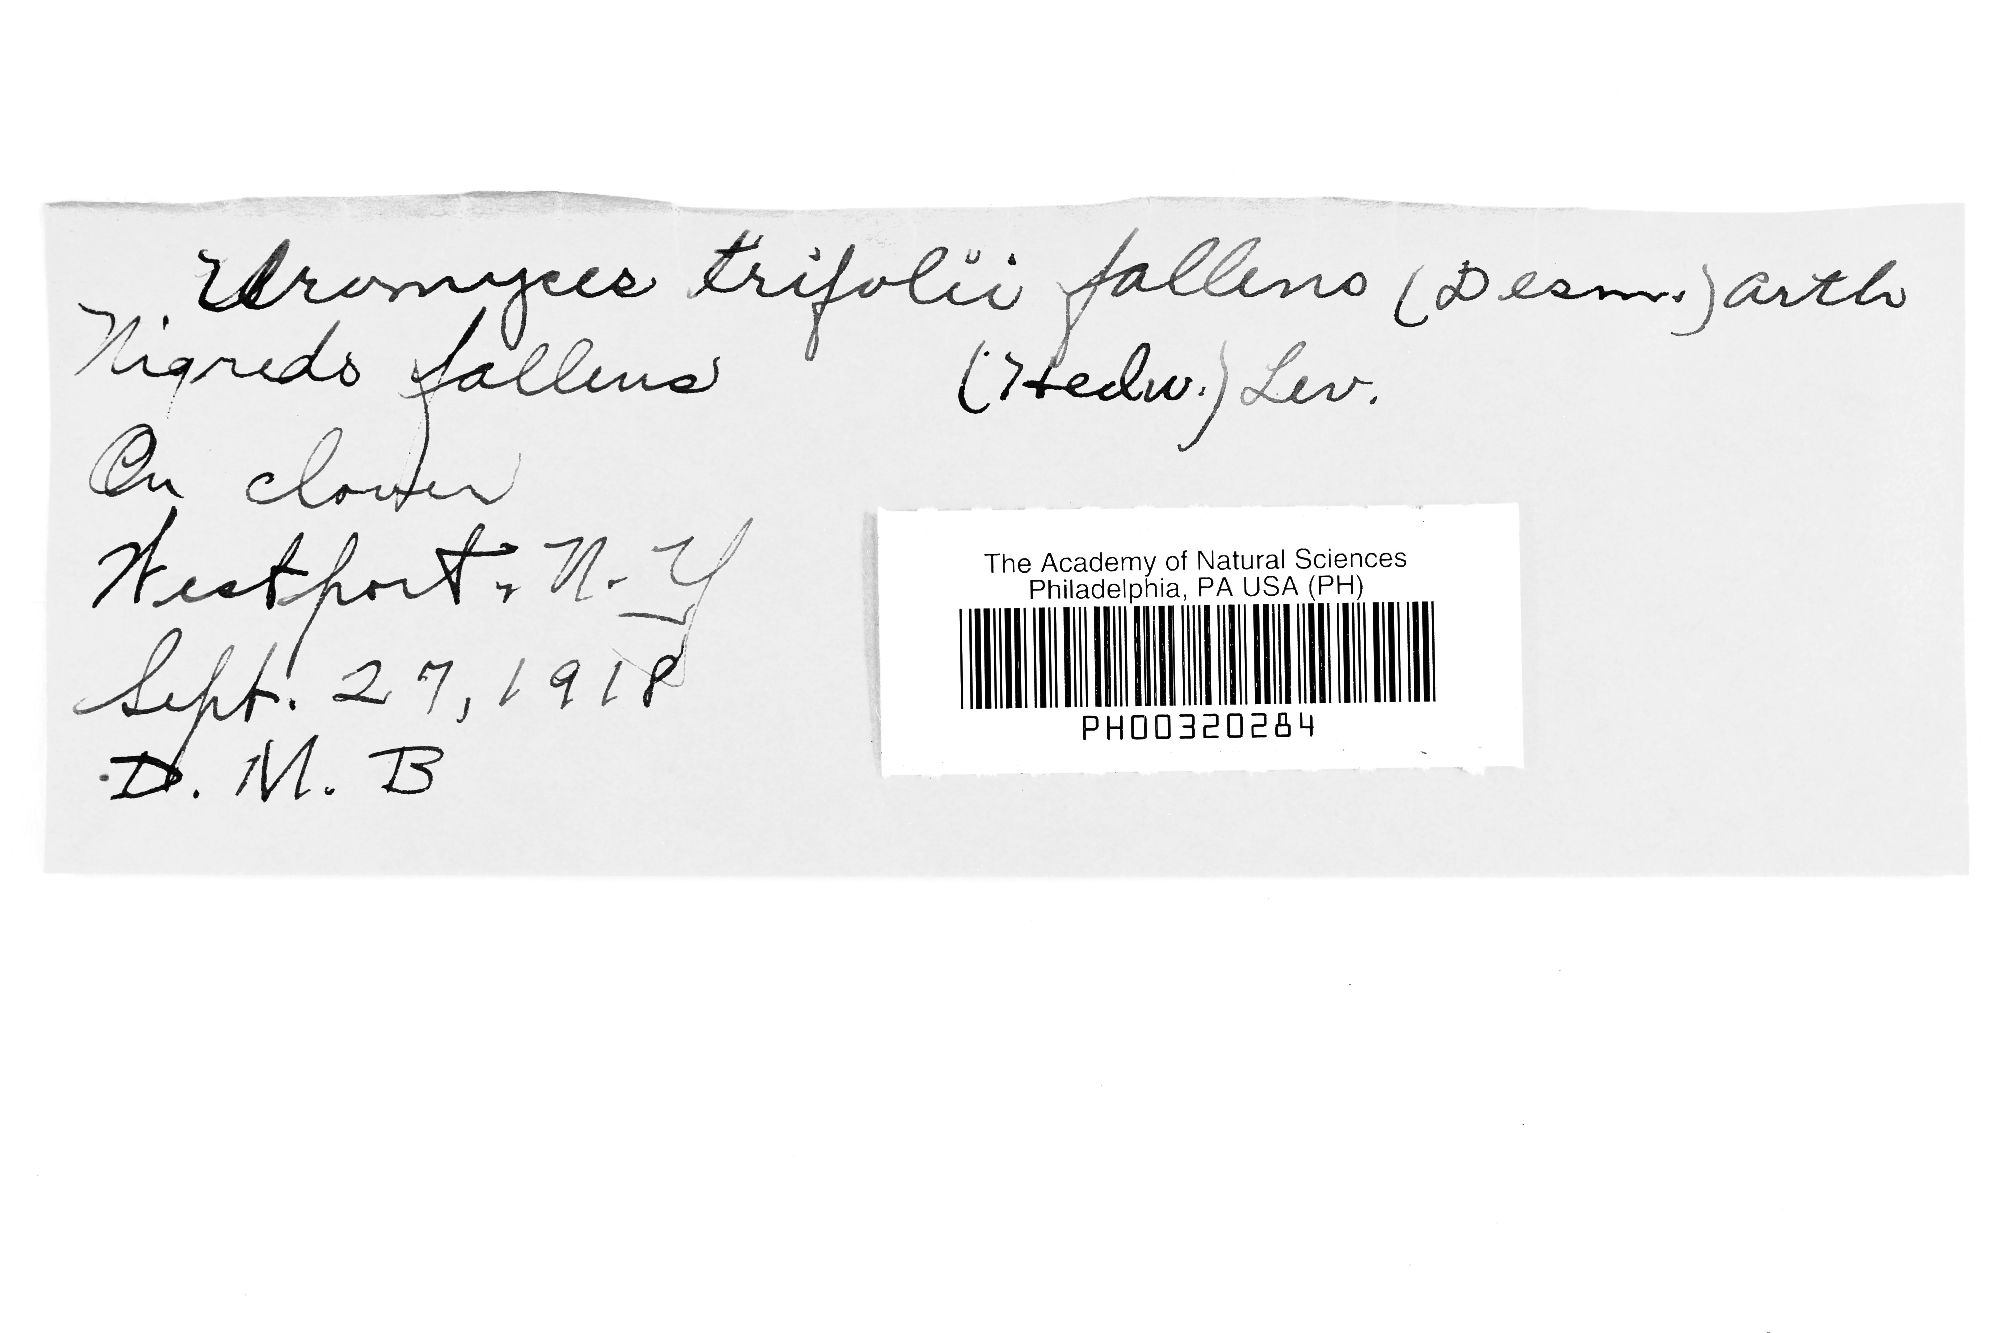 Uromyces trifolii fallens (Desm.) Arth
Nigredo fallens (Hedw.) Lev.
On clover
Westport, N. Y
Sept. 27, 1918
D. M. B
The Academy of Natural Sciences
Philadelphia, PA USA (PH)
PH00320284